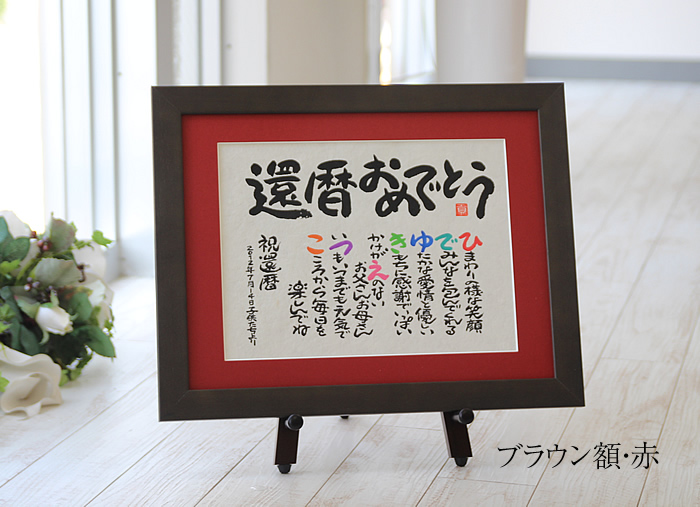 還暦おめでとう
ひまわりの様な笑顔
でみんなを包んでくれる
ゆたかな愛情と優しい
きもちに感謝でいっぱい
かけがえのない
お父さんお母さん
いつもいつまでも元気で
こころから毎日を
楽しんでね
祝還暦
2012年7月14日 子供たちより
ブラウン額・赤